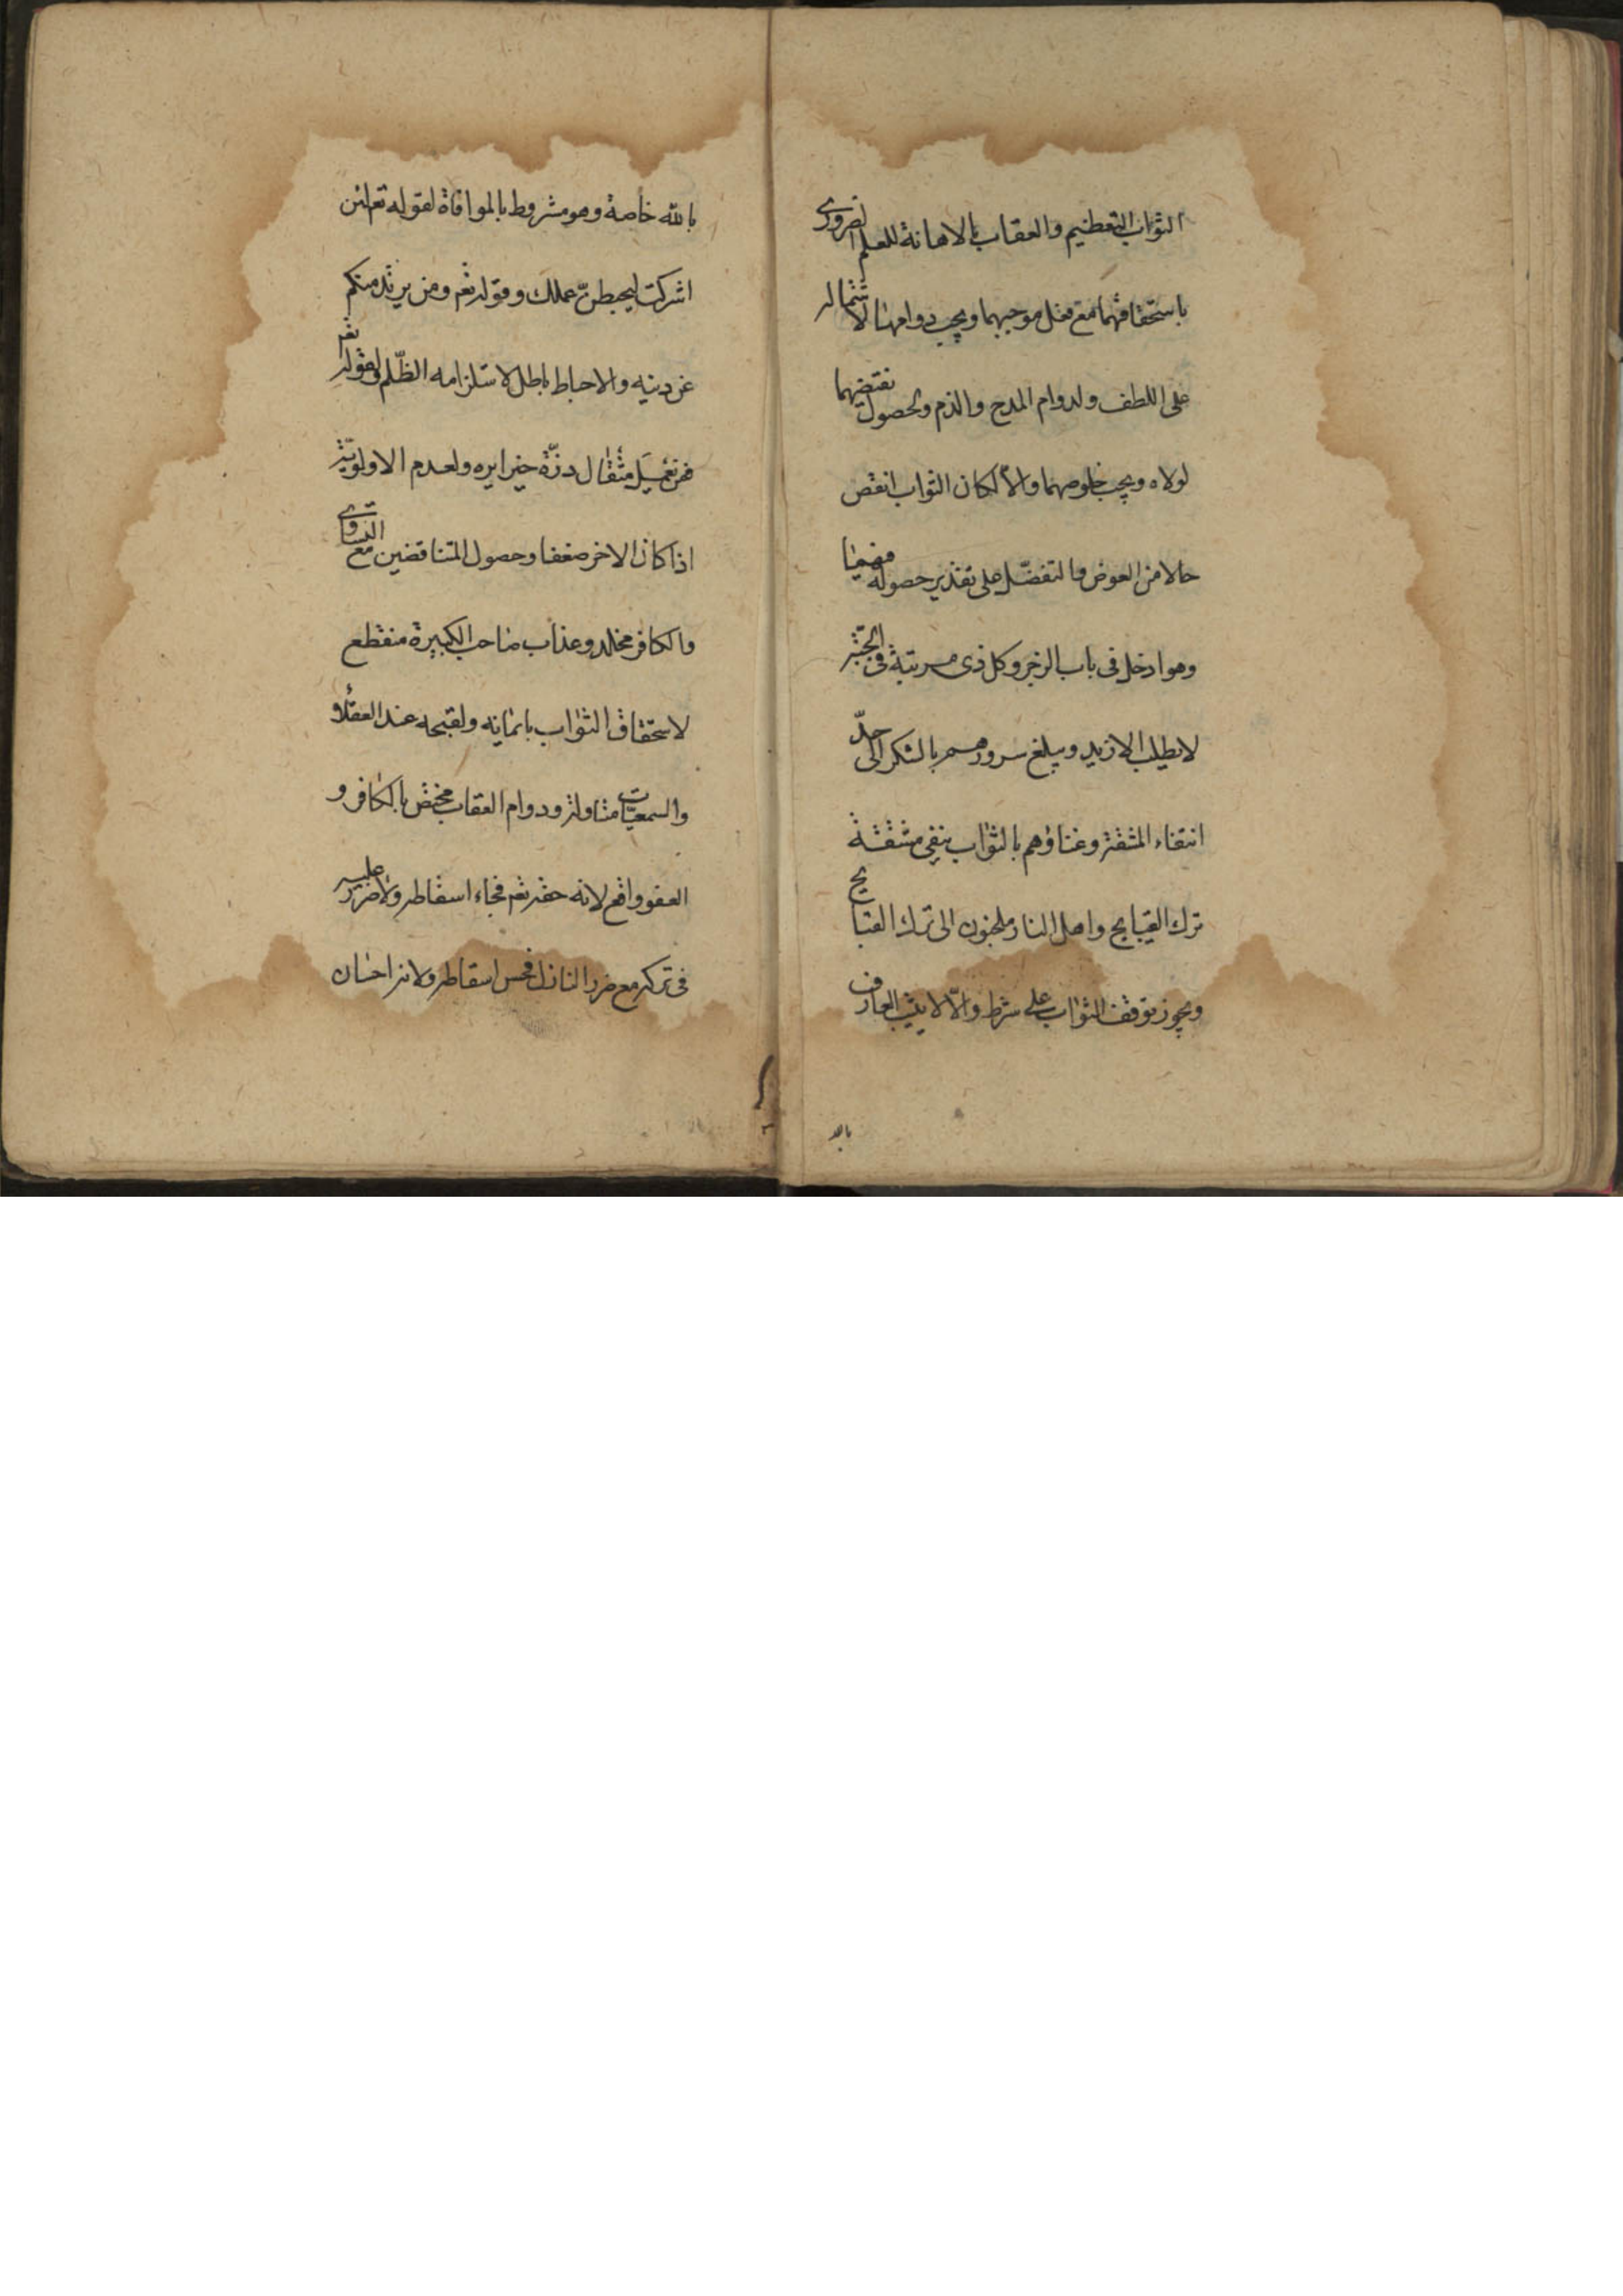 الثواب بالتعظيم والعقاب بالاهانة للعلم الضروری
باستحقاقهما مع فعل موجبهما ويجب دوامهما لاشتماله
على اللطف ولدوام المدح والذم ولحصول نقيضهما
لولاه ويجب خلوصهما والا لكان الثواب انقص
حالا من العوض والتفضّل على تقدير حصوله فيهما
وهو ادخل فى باب الزجر وكل ذى مرتبة فى الجنّة
لا يطلب الازيد ويبلغ سرورهم بالشكر الى حدّ
انتفاء المشقة وغناؤهم بالثواب ينفى مشقة
ترك القبايح واهل النار ملجئون الى ترك القبايح
ويجوز توقف الثواب على شرط والّا لا يثيب العارف
بالله
بالله خاصة وهو مشروط بالموافاة لقوله تع لئن
اشركت ليحبطنّ عملك وقوله تع ومن يرتدد منكم
عن دينه والاحباط باطل لاستلزامه الظّلم ولقوله تع
فمن يعمل مثقال ذرّة خيرا يره ولعدم الاولويّة
اذا كان الاخر ضعفا وحصول المتناقضين مع التساوى
والكافر مخلد وعذاب صاحب الكبيرة منقطع
لاستحقاق الثواب بايمانه ولقبحه عند العقلاء
والسمعيّات متاولة ودوام العقاب مختص بالكافر و
العفو واقع لانه حقه تع فجاء اسقاطه ولا ضرر عليه
فى تركه مع ضرر النازل فحسن اسقاطه ولانه احسان